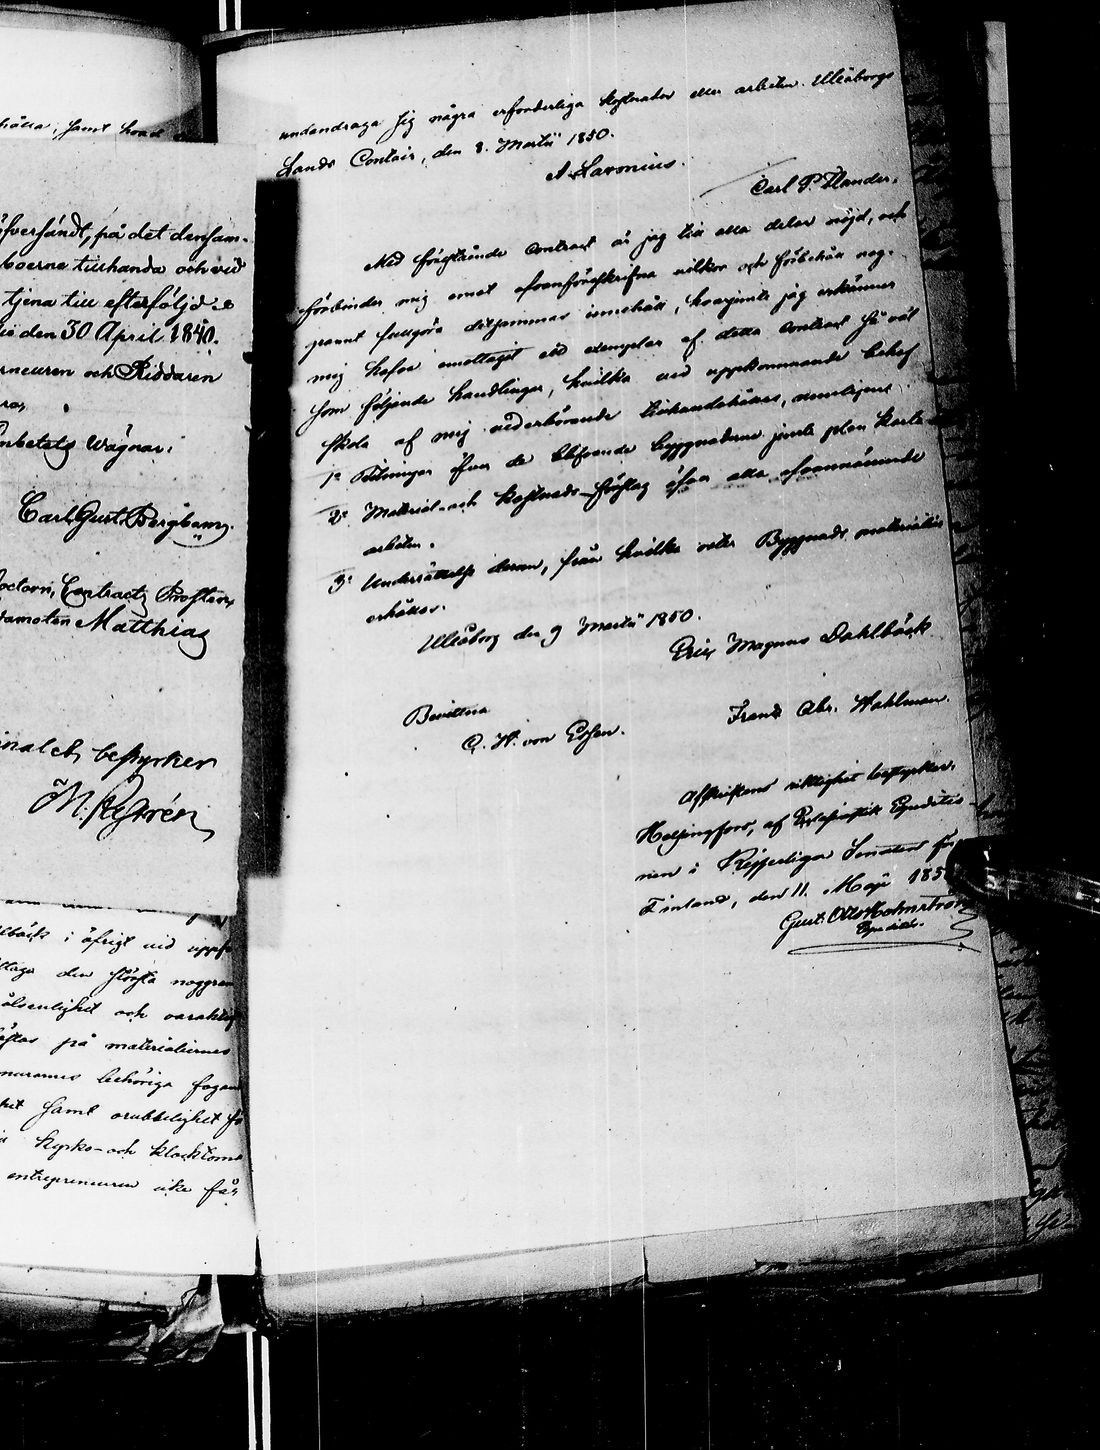 hålla, samt hvad
öfversändt, på det densam-
boerne tillhanda och vid
tjena till efterföljd
den 30 April 1840.
rneuren och Riddaren
mbetets Vägnar:
Carl Gust. Bergbom
octorn, Contracts Prosten,
Matthias
inalet, bestyrker
lbäck i öfrigt vid
ttaga den största noggran
ålsenlighet och varaktig
på materialiernes
murarnes behöriga fogan
het samt orubbelighet fö
kyrko- och klocktorne
entrepreneuren icke får
undandraga sig några erforderliga kostnader eller arbeten. Uleåborgs
Lands Contoir, den 8. Martii 1850.
A Lavonius.
Carl P. Elander.
Med förestående Contract är jag till alla delar nöjd, och
förbinder mig emot ofvanföreskrifne vilkor och förbehåll nog-
gannt fullgöra detsammas innehåll, hvarjemte jag erkänner
mig hafva emottagit ett exemplar af detta Contract så väl
som följande handlingar, hvilka vid uppkommande behof
skola af mig vederbörande tillhandahållas, nemligen:
1° Ritningar öfver de blifvande byggnaderne jemte plan karta
2° Material- och kostnads-förslag öfver alla ofvannämnde
arbeten.
3° Underrättelse derom, från hvilka orter Byggnads materialier
erhållas.
Uleåborg den 9 Martii 1850.
Eric Magnus Dahlbäck
Bevittna
C. H. von Essen.
Frans Abr. Wahlman.
Afskriftens riktighet bestyrker:
Helsingfors, af Ecclesiastik Expeditio-
nen i Kejserliga Senaten för
Finland, den 11. Maji 185
Gust. Holmström